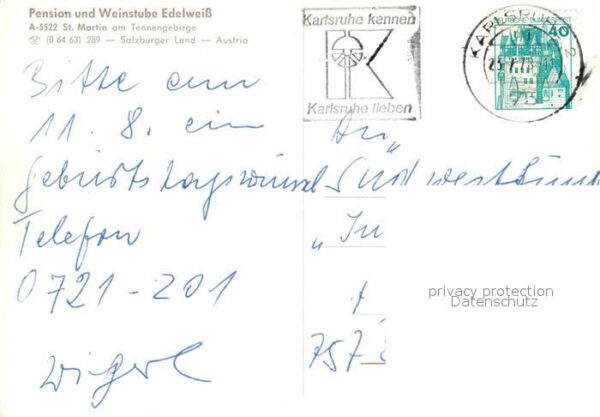 Pension und Weinstube Edelweiß
A-5522 St. Martin am Tennengebirge
☏ (0 64 63) 289 — Salzburger Land — Austria
Karlsruhe kennen
K
Karlsruhe lieben
KARLSRUHE
DEUTSCHE BUNDESPOST
40
Bitte am
11. 8. ein
Geburtstagswunsch
Telefon
0721-201
Wigerl
An
Südwestfunk
„In
757
privacy protection
Datenschutz